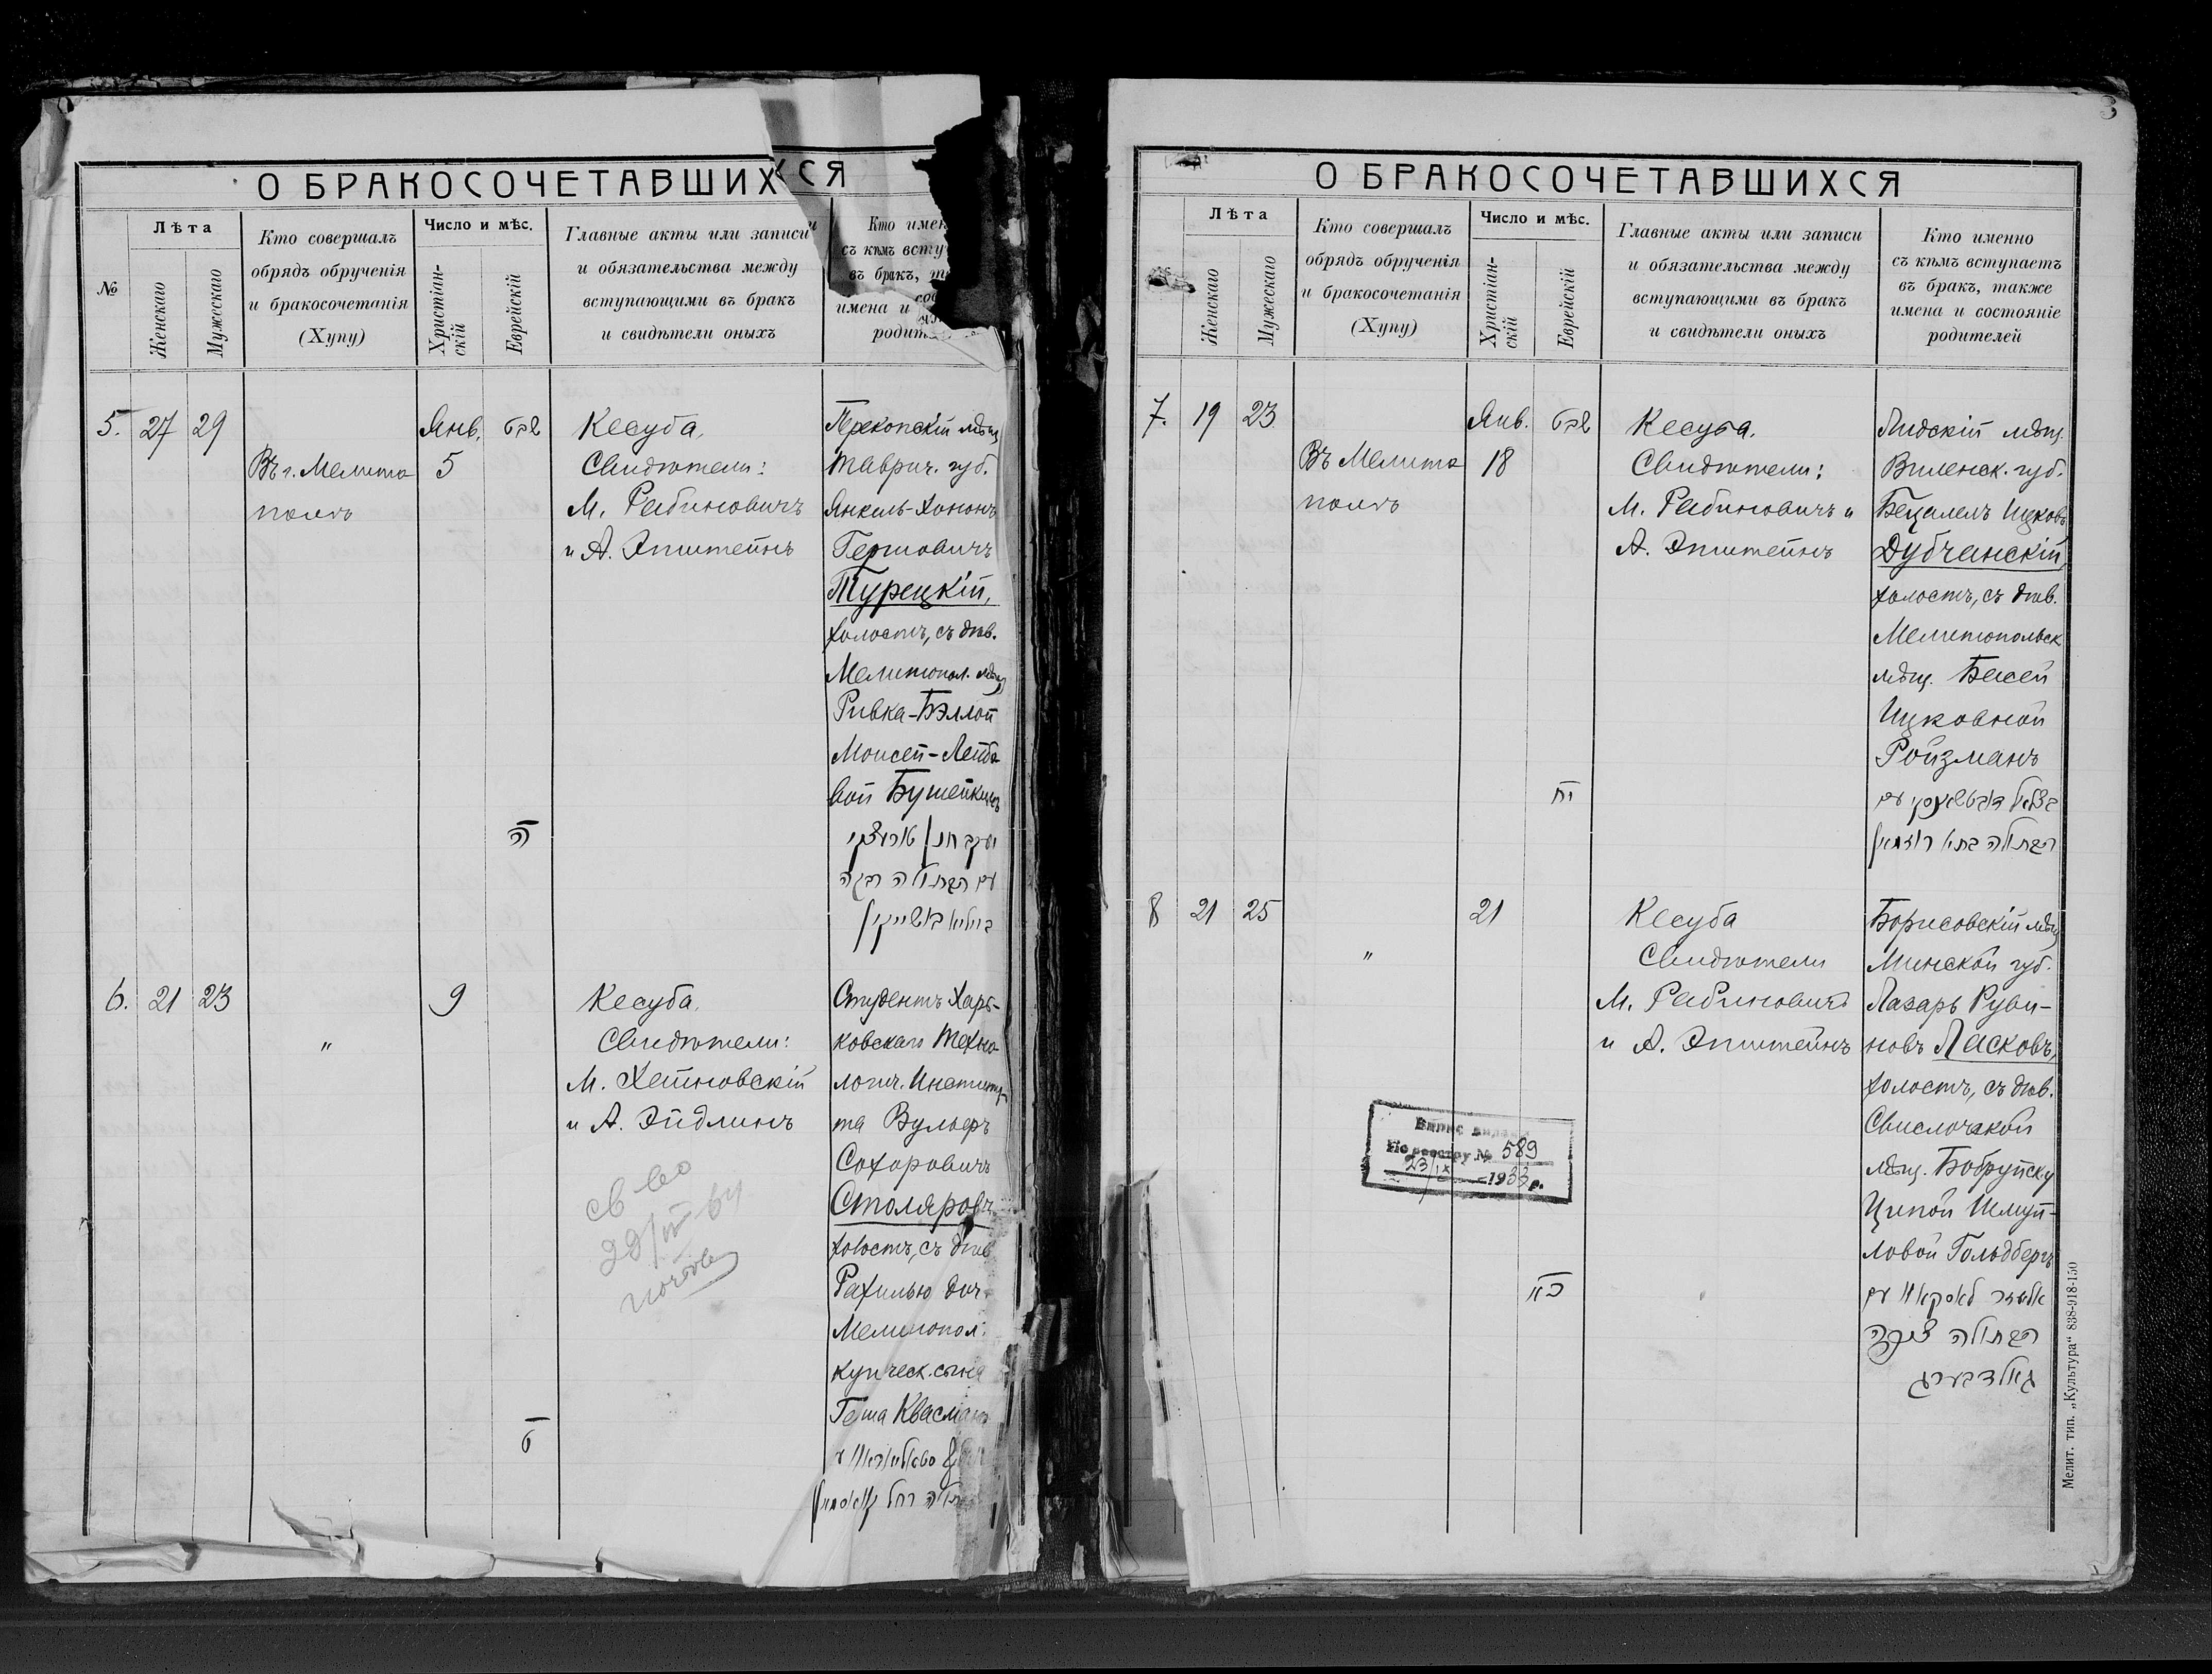 О БРАКОСОЧЕТАВШИХСЯ
№
Лѣта
Женскаго
Мужескаго
Кто совершалъ
обрядъ обрученія
и бракосочетанія
(Хупу)
Число и мѣс.
Христіан-
скій
Еврейскій
Главные акты или записи
и обязательства между
вступающими въ бракъ
и свидѣтели оныхъ
Кто имен
съ кѣмъ всту
въ бракъ,
имена и
родит
5. 27 29
Въ г. Мелито
полѣ
Янв.
5
ה
Кесуба.
Свидѣтели:
М. Рабиновичъ
и А. Эпштейнъ
Перекопскій мѣщ
Таврич. губ.
Янкель-Хононъ
Гершовичъ
Турецкій,
холостъ, съ дѣв.
Мелитопол. мѣщ
Ривка-Бэллой
Моисей-Лейбо
вой Бушейкинъ
יעקב חנן טורעצקי
עם הבתולה רבקה
ביילא בושייקין
6. 21 23
"
9
ט
Кесуба.
Свидѣтели:
М. Хейновскій
и А. Эйдлинъ
Студентъ Харь-
ковскаго Техно-
логич. Институ-
та Вульфъ
Сохоровичъ
Столяровъ
холостъ, съ дѣв
Рахилью доч.
Мелитопол.
купческ. сына
Геша Квасманъ
О БРАКОСОЧЕТАВШИХСЯ
3
Лѣта
Женскаго
Мужескаго
Кто совершалъ
обрядъ обрученія
и бракосочетанія
(Хупу)
Число и мѣс.
Христіан-
скій
Еврейскій
Главные акты или записи
и обязательства между
вступающими въ бракъ
и свидѣтели оныхъ
Кто именно
съ кѣмъ вступаетъ
въ бракъ, также
имена и состояніе
родителей
7. 19 23
Въ Мелито
полѣ
Янв.
18
יח
Кесуба.
Свидѣтели:
М. Рабиновичъ и
А. Эпштейнъ
Лидскій мѣщ.
Виленск. губ.
Бецалелъ Ицковъ
Дубчанскій,
холостъ, съ дѣв.
Мелитопольск
мѣщ. Басей
Ицковной
Ройзманъ
8 21 25
"
21
כא
Кесуба
Свидѣтели
М. Рабиновичъ
и А. Эпштейнъ
Борисовскій мѣщ
Минской губ.
Лазарь Руви-
новъ Ласковъ,
холостъ, съ дѣв.
Свислочской
мѣщ. Бобруйск.у
Ципой Шмуй-
ловой Гольдбергъ
אליעזר לאסקאוו עם
הבתולה ציפה
גאלדבערג
По реестру № 589
23/IX 1933 р.
Мелит. тип. „Культура“ 838-918-150